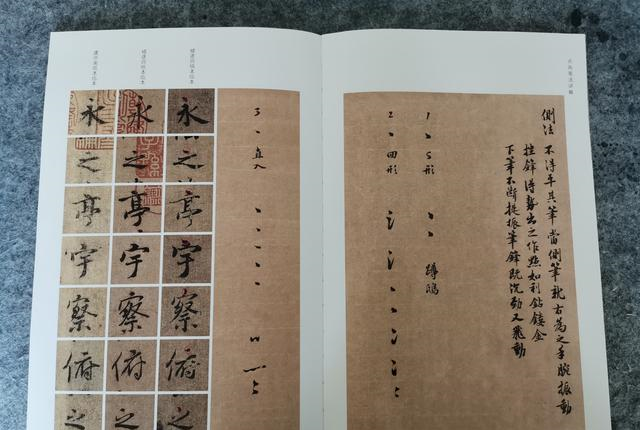 侧法 不得平其筆當側筆就右為之手腕振動
挫鋒得勢出之作點如利鉆鏤金
下筆不斷提振筆鋒既沉劲又飛動
1、S形
蹲鴟
2、四形
3、直入
永 永 永
之 之 之
亭 亭 亭
宇 宇 宇
察 察 察
俯 俯 俯
之 之 之